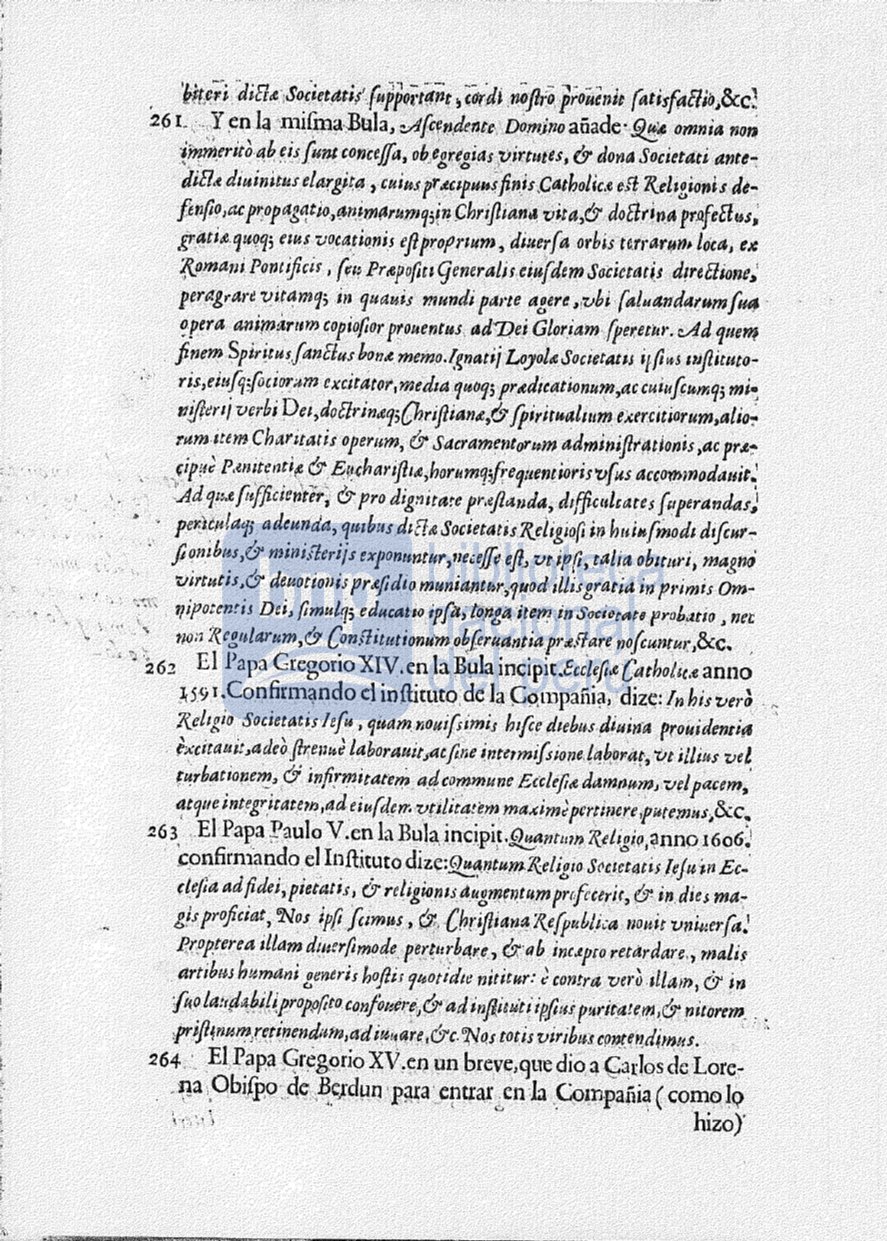 biteri dictæ Societatis ſupportant, cordi noſtro prouenit ſatisfactio,&c.
261. Y en la miſma Bula, Aſcendente Domino añade: Quæ omnia non
immeritò ab eis ſunt conceſſa, ob egregias virtutes, & dona Societati ante-
dictæ diuinitus elargita, cuius præcipuus finis Catholicæ eſt Religionis de-
fenſio,ac propagatio,animarumq;in Chriſtiana vita,& doctrina profectus,
gratiæ quoq; eius vocationis eſt proprium, diuerſa orbis terrarum loca, ex
Romani Pontificis, ſeu Præpoſiti Generalis eiuſdem Societatis directione,
peragrare vitamq; in quauis mundi parte agere, vbi ſaluandarum ſua
opera animarum copioſior prouentus ad Dei Gloriam ſperetur. Ad quem
finem Spiritus ſanctus bonæ memo. Ignatij Loyolæ Societatis ipſius inſtituto-
ris,eiuſq;ſociorum excitator,media quoq; prædicationum,ac cuiuſcumq; mi-
niſterij verbi Dei,doctrinæq;Chriſtianæ,& ſpiritualium exercitiorum,alio-
rum item Charitatis operum, & Sacramentorum adminiſtrationis,ac præ-
cipuè Pænitentiæ & Euchariſtiæ,horumq;frequentioris vſus accommodauit.
Ad quæ ſufficienter, & pro dignitate præſtanda, difficultates ſuperandas,
periculaq; adeunda, quibus dictæ Societatis Religioſi in huiuſmodi diſcur-
ſionibus,& miniſterijs exponuntur,neceſſe eſt, vt ipſi, talia obituri, magno
virtutis,& deuotionis præſidio muniantur,quod illis gratia in primis Om-
nipotentis Dei, ſimulq; educatio ipſa, longa item in Societate probatio, nec
non Regularum,& Conſtitutionum obſeruantia præſtare noſcuntur,&c.
262 El Papa Gregorio XIV. en la Bula incipit.Eccleſiæ Catholicæ anno
1591.Confirmando el inſtituto de la Compañia, dize: In his verò
Religio Societatis Ieſu, quam nouiſsimis hiſce diebus diuina prouidentia
excitauit,adeò ſtrenuè laborauit,ac ſine intermiſsione laborat, vt illius vel
turbationem, & infirmitatem ad commune Eccleſiæ damnum, vel pacem,
atque integritatem,ad eiuſdem vtilitatem maximè pertinere putemus,&c.
263 El Papa Paulo V.en la Bula incipit.Quantum Religio,anno 1606.
confirmando el Inſtituto dize:Quantum Religio Societatis Ieſu in Ec-
cleſia ad fidei, pietatis, & religionis augmentum profecerit, & in dies ma-
gis proficiat, Nos ipſi ſcimus, & Chriſtiana Reſpublica nouit vniuerſa.
Propterea illam diuerſimode perturbare, & ab incæpto retardare, malis
artibus humani generis hoſtis quotidie nititur: è contra verò illam, & in
ſuo laudabili propoſito confouere,& ad inſtituti ipſius puritatem,& nitorem
priſtinum retinendum,adiuuare,&c.Nos totis viribus contendimus.
264 El Papa Gregorio XV.en un breve,que dio a Carlos de Lore-
na Obiſpo de Berdun para entrar en la Compañia (como lo
hizo)
bnp biblioteca
nacional
del perú